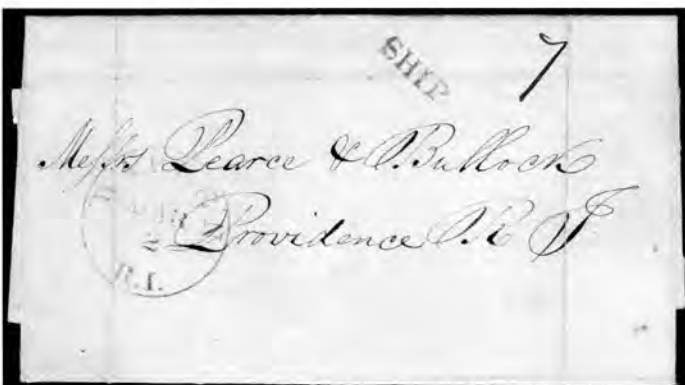 SHIP
7
Messrs Pearce & Bullock
Providence R I
MAR
2
R.I.